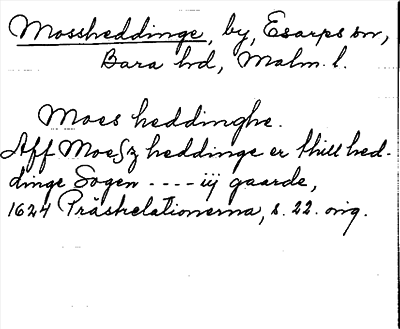 Mossheddinge, by, Esarps sn,
Bara hd, Malm. l.
Moes heddinghe.
Aff Moesz heddinge er thill hed-
dinge Sogen ---- iij gaarde,
1624 Prästrelationerna, s. 22. orig.